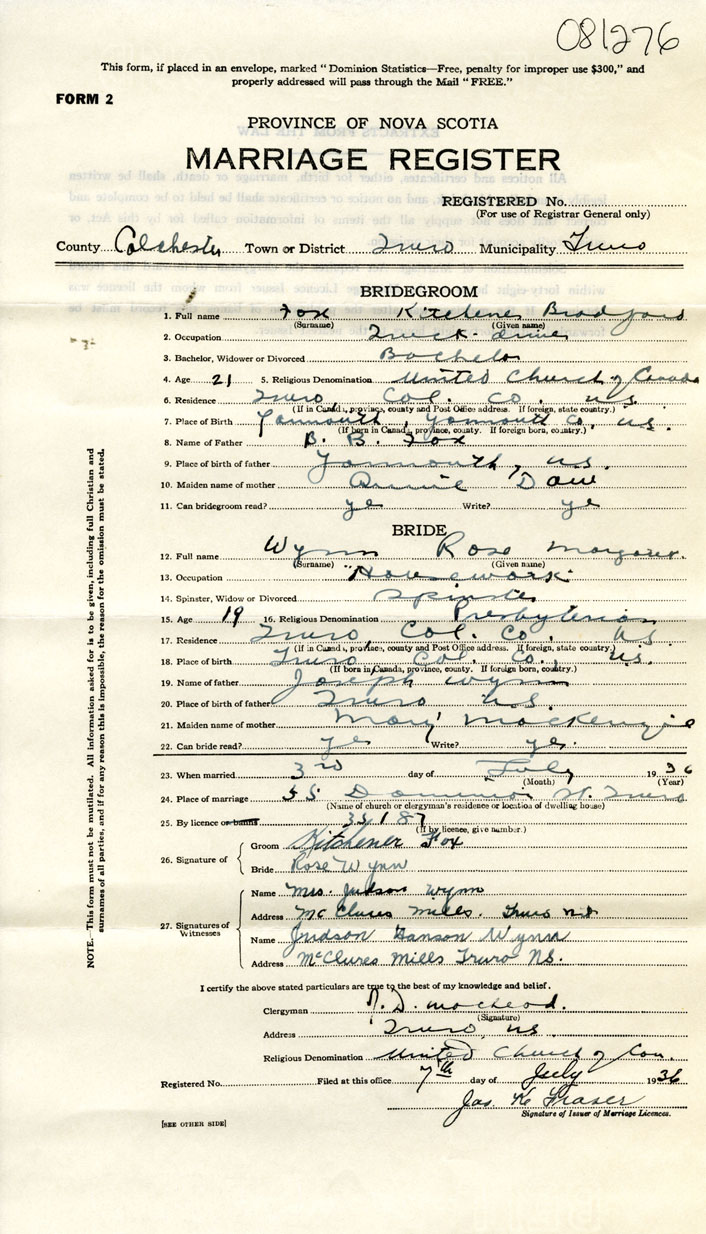 081276
This form, if placed in an envelope, marked "Dominion Statistics—Free, penalty for improper use $300," and
properly addressed will pass through the Mail "FREE."
FORM 2
PROVINCE OF NOVA SCOTIA
MARRIAGE REGISTER
REGISTERED No.
(For use of Registrar General only)
County Colchester Town or District Truro Municipality Truro
BRIDEGROOM
1. Full name Fox Kitchener Bradford
(Surname) (Given name)
2. Occupation Truck driver
3. Bachelor, Widower or Divorced Bachelor
4. Age 21 5. Religious Denomination United Church of Canada
6. Residence Truro, Col. Co. N.S.
(If in Canada, province, county and Post Office address. If foreign, state country.)
7. Place of Birth Yarmouth, Yarmouth Co. N.S.
(If born in Canada, province, county. If foreign born, country.)
8. Name of Father B. B. Fox
9. Place of birth of father Yarmouth, N.S.
10. Maiden name of mother Annie
11. Can bridegroom read? yes Write? yes
BRIDE
12. Full name Wynn Rose Margaret
(Surname) (Given name)
13. Occupation Housework
14. Spinster, Widow or Divorced Spinster
15. Age 19 16. Religious Denomination Presbyterian
17. Residence Truro, Col. Co. N.S
(If in Canada, province, county and Post Office address. If foreign, state country.)
18. Place of birth Truro Col. Co. N.S.
(If born in Canada, province, county. If foreign born, country.)
19. Name of father Joseph Wynn
20. Place of birth of father Truro N.S.
21. Maiden name of mother Mary MacKenzie
22. Can bride read? yes Write? yes.
23. When married 3rd day of July 1936
(Month) (Year)
24. Place of marriage 55 Dominion St. Truro
(Name of church or clergyman's residence or location of dwelling house)
25. By licence or banns 35187
(If by licence, give number.)
26. Signature of
Groom Kitchener Fox
Bride Rose Wynn
27. Signatures of Witnesses
Name Mrs. Judson Wynn
Address McClures Mills. Truro N.S.
Name Judson Hanson Wynn
Address McClures Mills Truro NS.
I certify the above stated particulars are true to the best of my knowledge and belief.
Clergyman D. MacLeod.
(Signature)
Address Truro, N.S.
Religious Denomination United Church of Can.
Registered No. Filed at this office 7th day of July 1936
Jas. K. Fraser
Signature of Issuer of Marriage Licences.
[SEE OTHER SIDE]
NOTE.—This form must not be mutilated. All information asked for is to be given, including full Christian and
surnames of all parties, and if for any reason this is impossible, the reason for the omission must be stated.